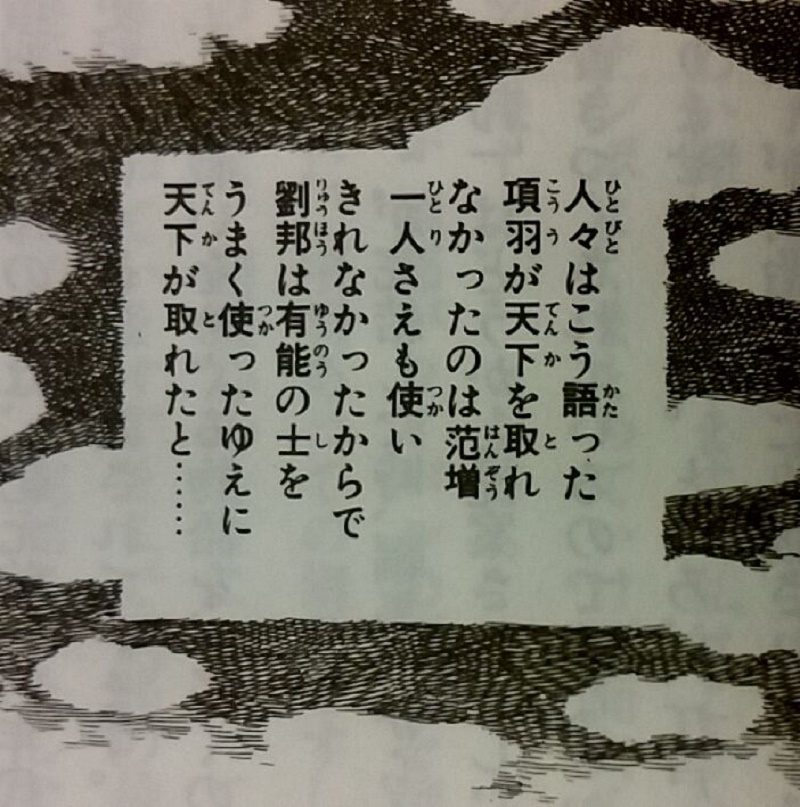 人々はこう語った
項羽が天下を取れ
なかったのは范増
一人さえも使い
きれなかったからで
劉邦は有能の士を
うまく使ったゆえに
天下が取れたと……